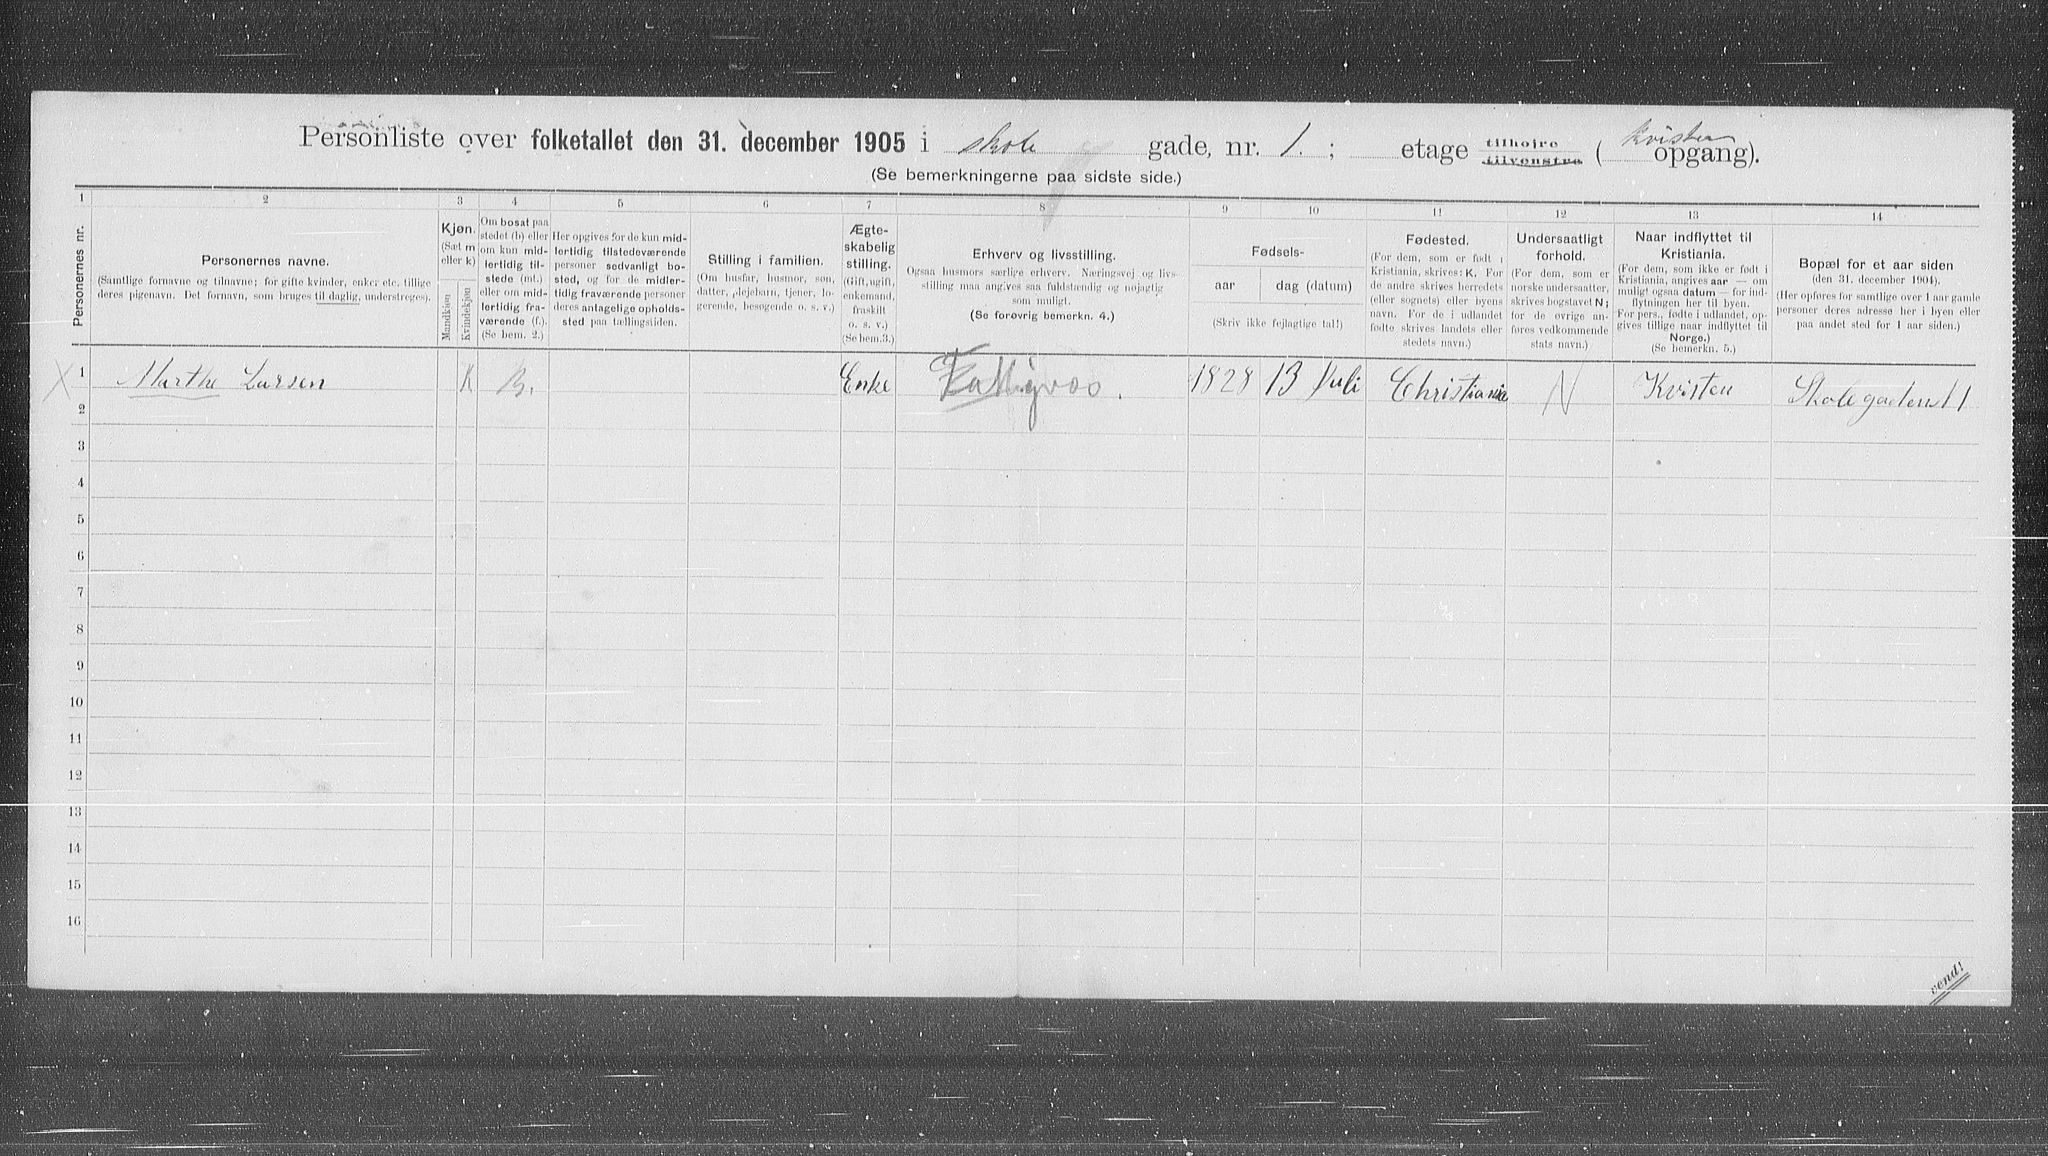 Personliste over folketallet den 31. december 1905 i Skole gade, nr. 1. ; etage tilhøire tilvenstre ( Kvisten opgang).
(Se bemerkningerne paa sidste side.)
1 2 3 4 5 6 7 8 9 10 11 12 13 14
Personernes nr.
Personernes navne.
(Samtlige fornavne og tilnavne; for gifte kvinder, enker etc. tillige
deres pigenavn. Det fornavn, som bruges til daglig, understreges).
Kjøn.
(Sæt m
eller k)
Mandkjøn
Kvindekjøn
Om bosat paa
stedet (b) eller
om kun mid-
lertidig til-
stede (mt.)
eller om mid-
lertidig fra-
værende (f.)
(Se bem. 2.)
Her opgives for de kun mid-
lertidig tilstedeværende
personer sedvanligt bo-
sted, og for de midler-
tidig fraværende personer
deres antagelige opholds-
sted paa tællingstiden.
Stilling i familien.
(Om husfar, husmor, søn,
datter, plejebarn, tjener, lo-
gerende, besøgende o. s. v.)
Ægte-
skabelig
stilling.
(Gift, ugift,
enkemand,
fraskilt
o. s. v.)
(Se bem.3.)
Erhverv og livsstilling.
Ogsaa husmors særlige erhverv. Næringsvej og livs-
stilling maa angives saa fuldstændig og nøjagtig
som muligt.
(Se forøvrig bemerkn. 4.)
Fødsels-
aar
dag (datum)
(Skriv ikke fejlagtige tal!)
Fødested.
(For dem, som er født i
Kristiania, skrives: K. For
de andre skrives herredets
(eller sognets) eller byens
navn. For de i udlandet
fødte skrives landets eller
stedets navn.)
Undersaatligt
forhold.
(For dem, som er
norske undersaatter,
skrives bogstavet N;
for de øvrige an-
føres vedkommende
stats navn.)
Naar indflyttet til
Kristiania.
(For dem, som ikke er født i
Kristiania, angives aar — om
muligt ogsaa datum — for ind-
flytningen her til byen.
For pers., fødte i udlandet, op-
gives tillige naar indflyttet til
Norge.)
(Se bemerkn. 5.)
Bopæl for et aar siden
(den 31. december 1904).
(Her opføres for samtlige over 1 aar gamle
personer deres adresse her i byen eller
paa andet sted for 1 aar siden.)
X 1 Marthe Larsen K B. Enke Fattigvæs . 1828 13 Juli Christiania N Kvisten Skolegaden 1
2
3
4
5
6
7
8
9
10
11
12
13
14
15
16
vend!